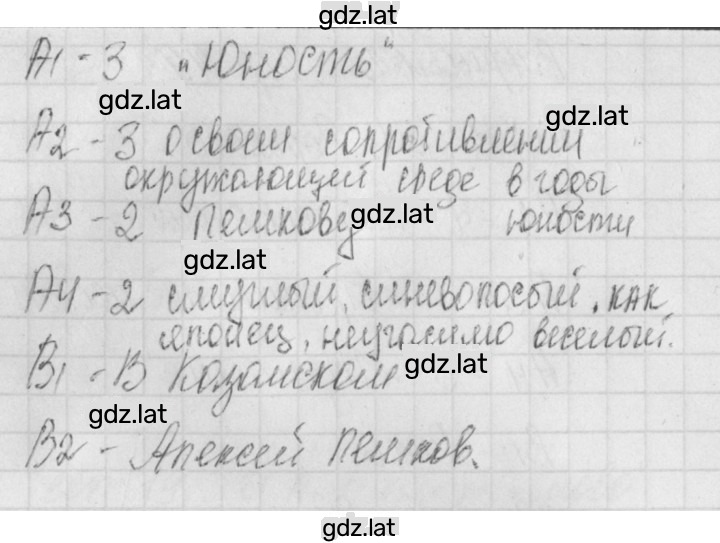 gdz.lat
А1 - 3 "Юность"
gdz.lat
gdz.lat
А2 - 3 о своем сопротивлении
окружающей среде в годы
А3 - 2 Пешкову gdz.lat юности
gdz.lat
А4 - 2 смуглый, синеволосый, как
японец, неугасимо веселый.
В1 - В Казанском gdz.lat
gdz.lat
В2 - Алексей Пешков.
gdz.lat